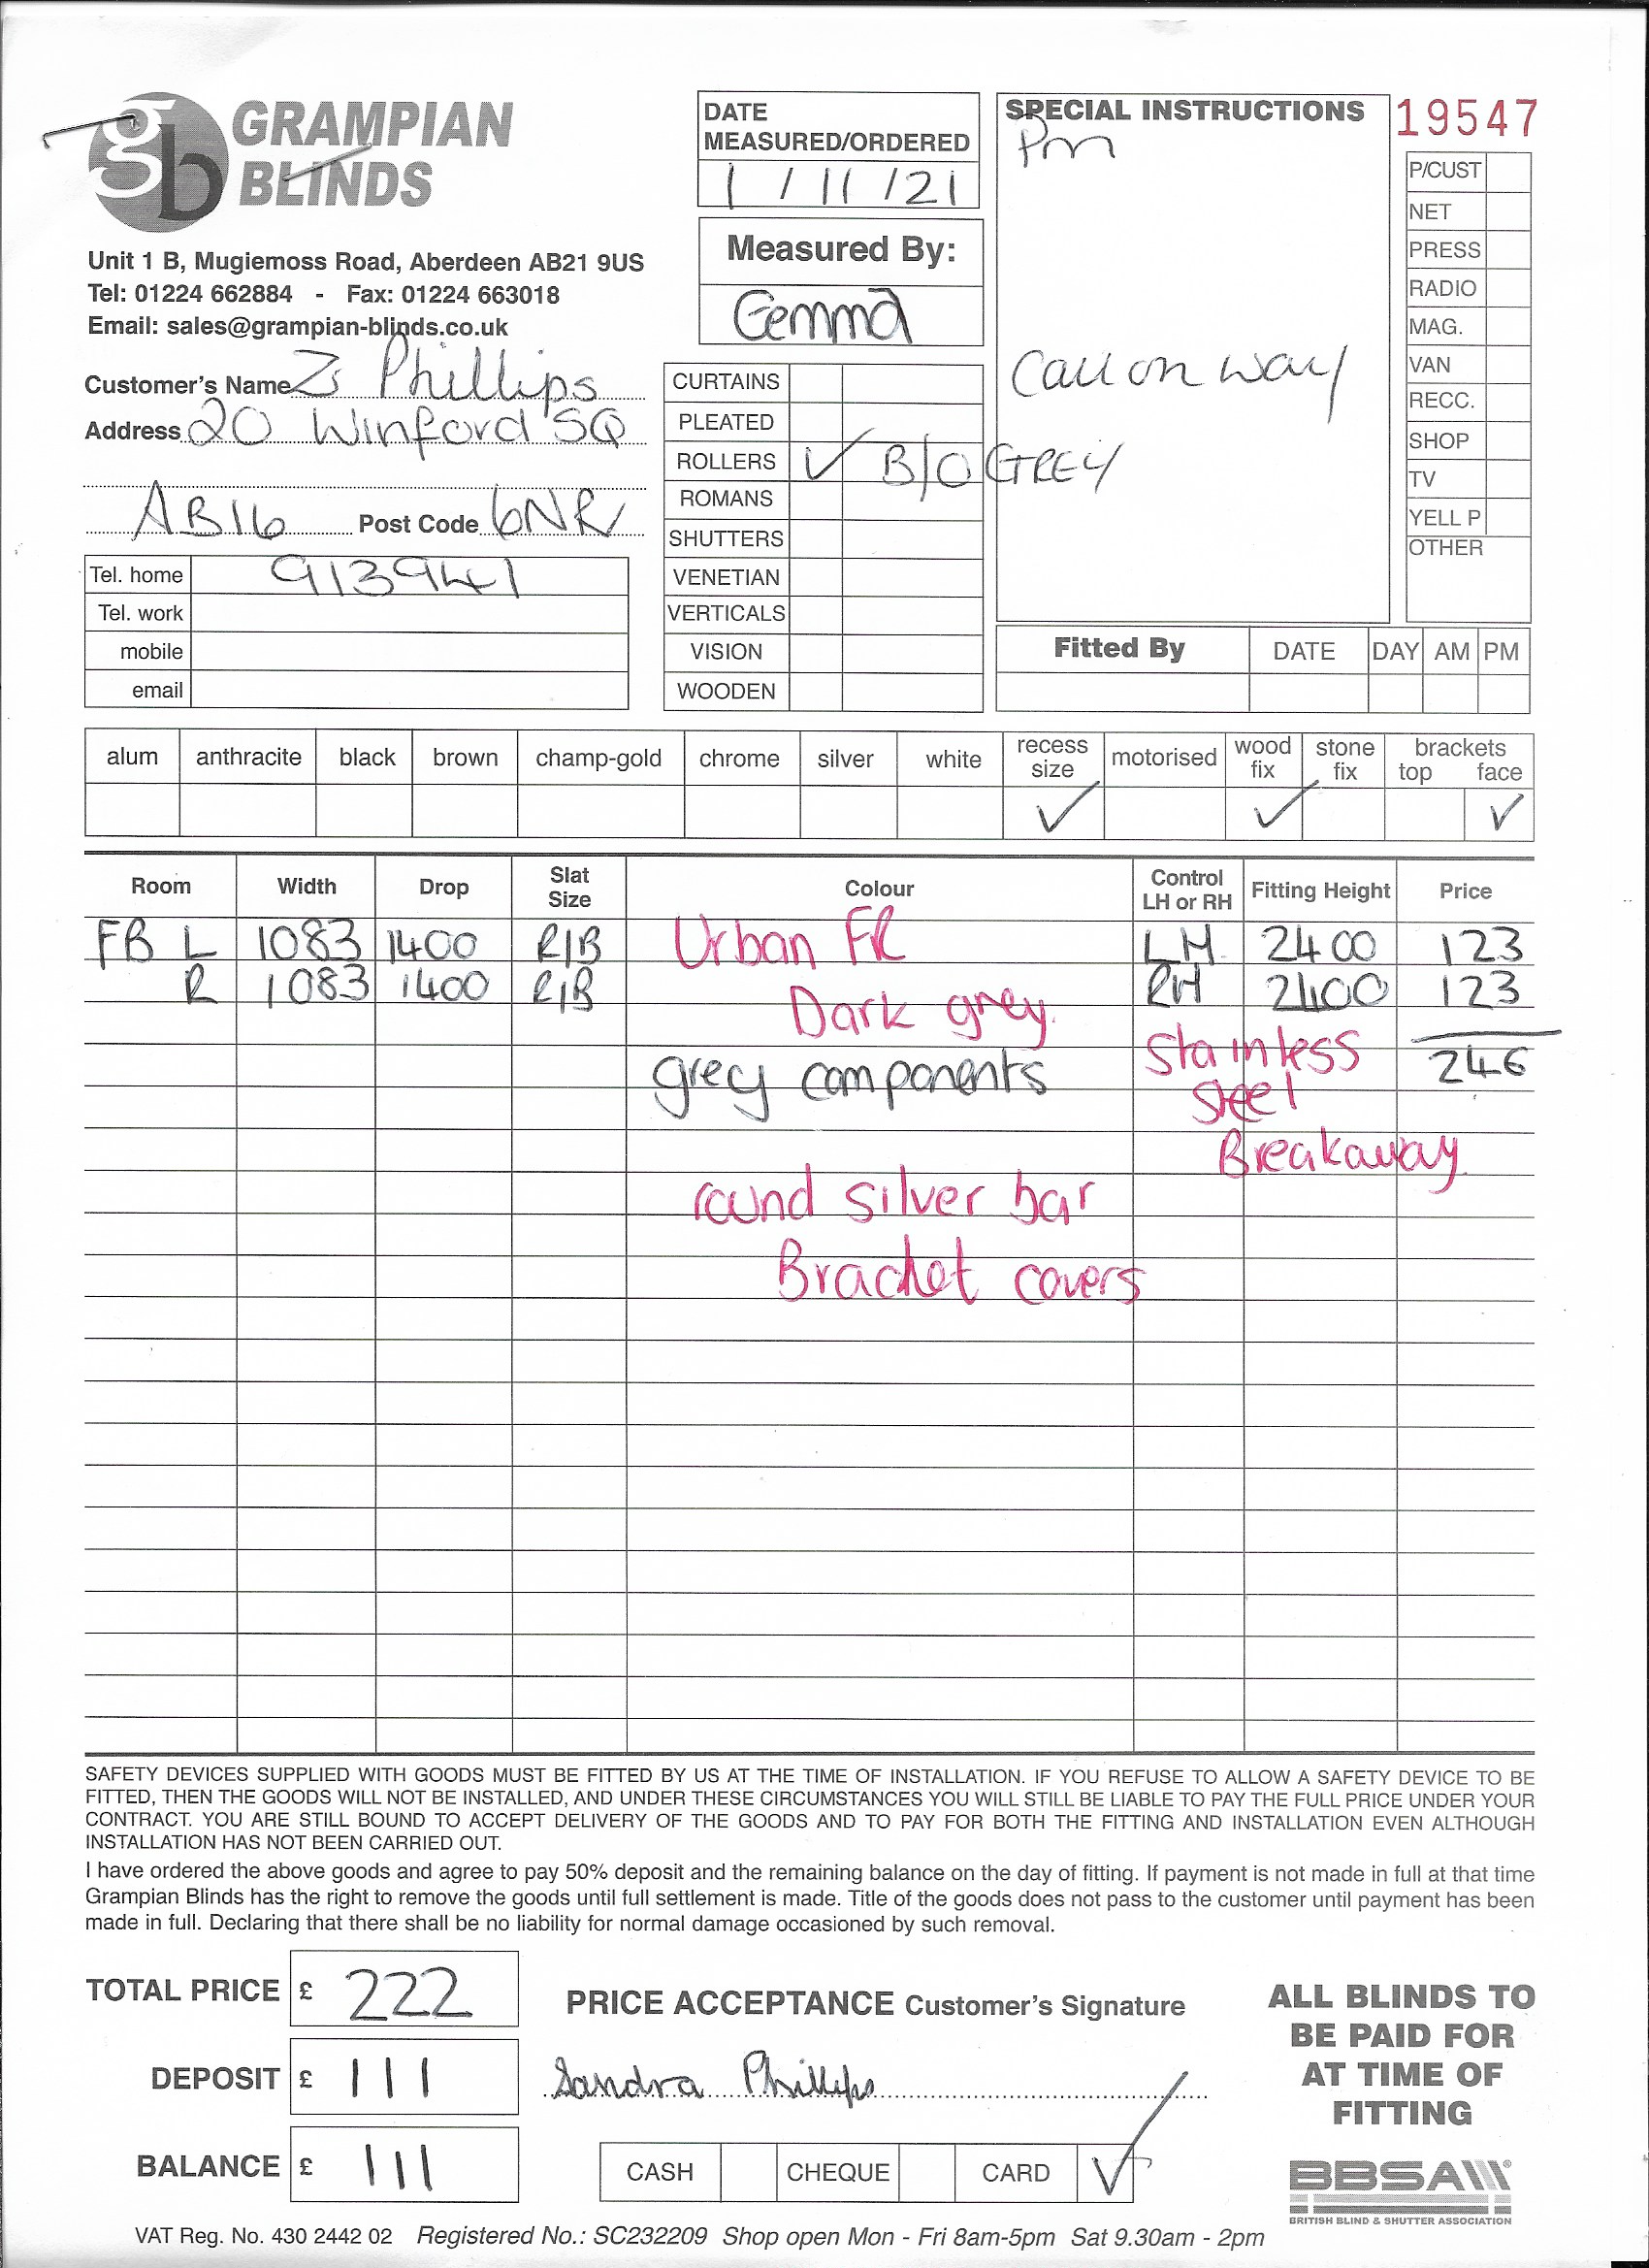 gb GRAMPIAN BLINDS
Unit 1 B, Mugiemoss Road, Aberdeen AB21 9US
Tel: 01224 662884 - Fax: 01224 663018
Email: sales@grampian-blinds.co.uk
Customer's Name Phillips
Address 20 Winford SQ
AB16 Post Code 6NR
Tel. home 913941
Tel. work
mobile
email
DATE
MEASURED/ORDERED
1 / 11 / 21
Measured By:
Gemma
CURTAINS
PLEATED
ROLLERS ✓ B/O GREY
ROMANS
SHUTTERS
VENETIAN
VERTICALS
VISION
WOODEN
SPECIAL INSTRUCTIONS
Pm
Call on way
19547
P/CUST
NET
PRESS
RADIO
MAG.
VAN
RECC.
SHOP
TV
YELL P
OTHER
Fitted By DATE DAY AM PM
alum anthracite black brown champ-gold chrome silver white recess size motorised wood fix stone fix brackets top face
✓ ✓ ✓
Room Width Drop Slat Size Colour Control LH or RH Fitting Height Price
FB L 1083 1400 R/B Urban FR LH 2400 123
R 1083 1400 R/B Dark grey RH 2400 123
grey components Stainless 246
steel
Breakaway
round silver bar
Bracket covers
SAFETY DEVICES SUPPLIED WITH GOODS MUST BE FITTED BY US AT THE TIME OF INSTALLATION. IF YOU REFUSE TO ALLOW A SAFETY DEVICE TO BE
FITTED, THEN THE GOODS WILL NOT BE INSTALLED, AND UNDER THESE CIRCUMSTANCES YOU WILL STILL BE LIABLE TO PAY THE FULL PRICE UNDER YOUR
CONTRACT. YOU ARE STILL BOUND TO ACCEPT DELIVERY OF THE GOODS AND TO PAY FOR BOTH THE FITTING AND INSTALLATION EVEN ALTHOUGH
INSTALLATION HAS NOT BEEN CARRIED OUT.
I have ordered the above goods and agree to pay 50% deposit and the remaining balance on the day of fitting. If payment is not made in full at that time
Grampian Blinds has the right to remove the goods until full settlement is made. Title of the goods does not pass to the customer until payment has been
made in full. Declaring that there shall be no liability for normal damage occasioned by such removal.
TOTAL PRICE £ 222
DEPOSIT £ 111
BALANCE £ 111
PRICE ACCEPTANCE Customer's Signature
Sandra Phillips
CASH CHEQUE CARD ✓
ALL BLINDS TO
BE PAID FOR
AT TIME OF
FITTING
BBSA
BRITISH BLIND & SHUTTER ASSOCIATION
VAT Reg. No. 430 2442 02 Registered No.: SC232209 Shop open Mon - Fri 8am-5pm Sat 9.30am - 2pm